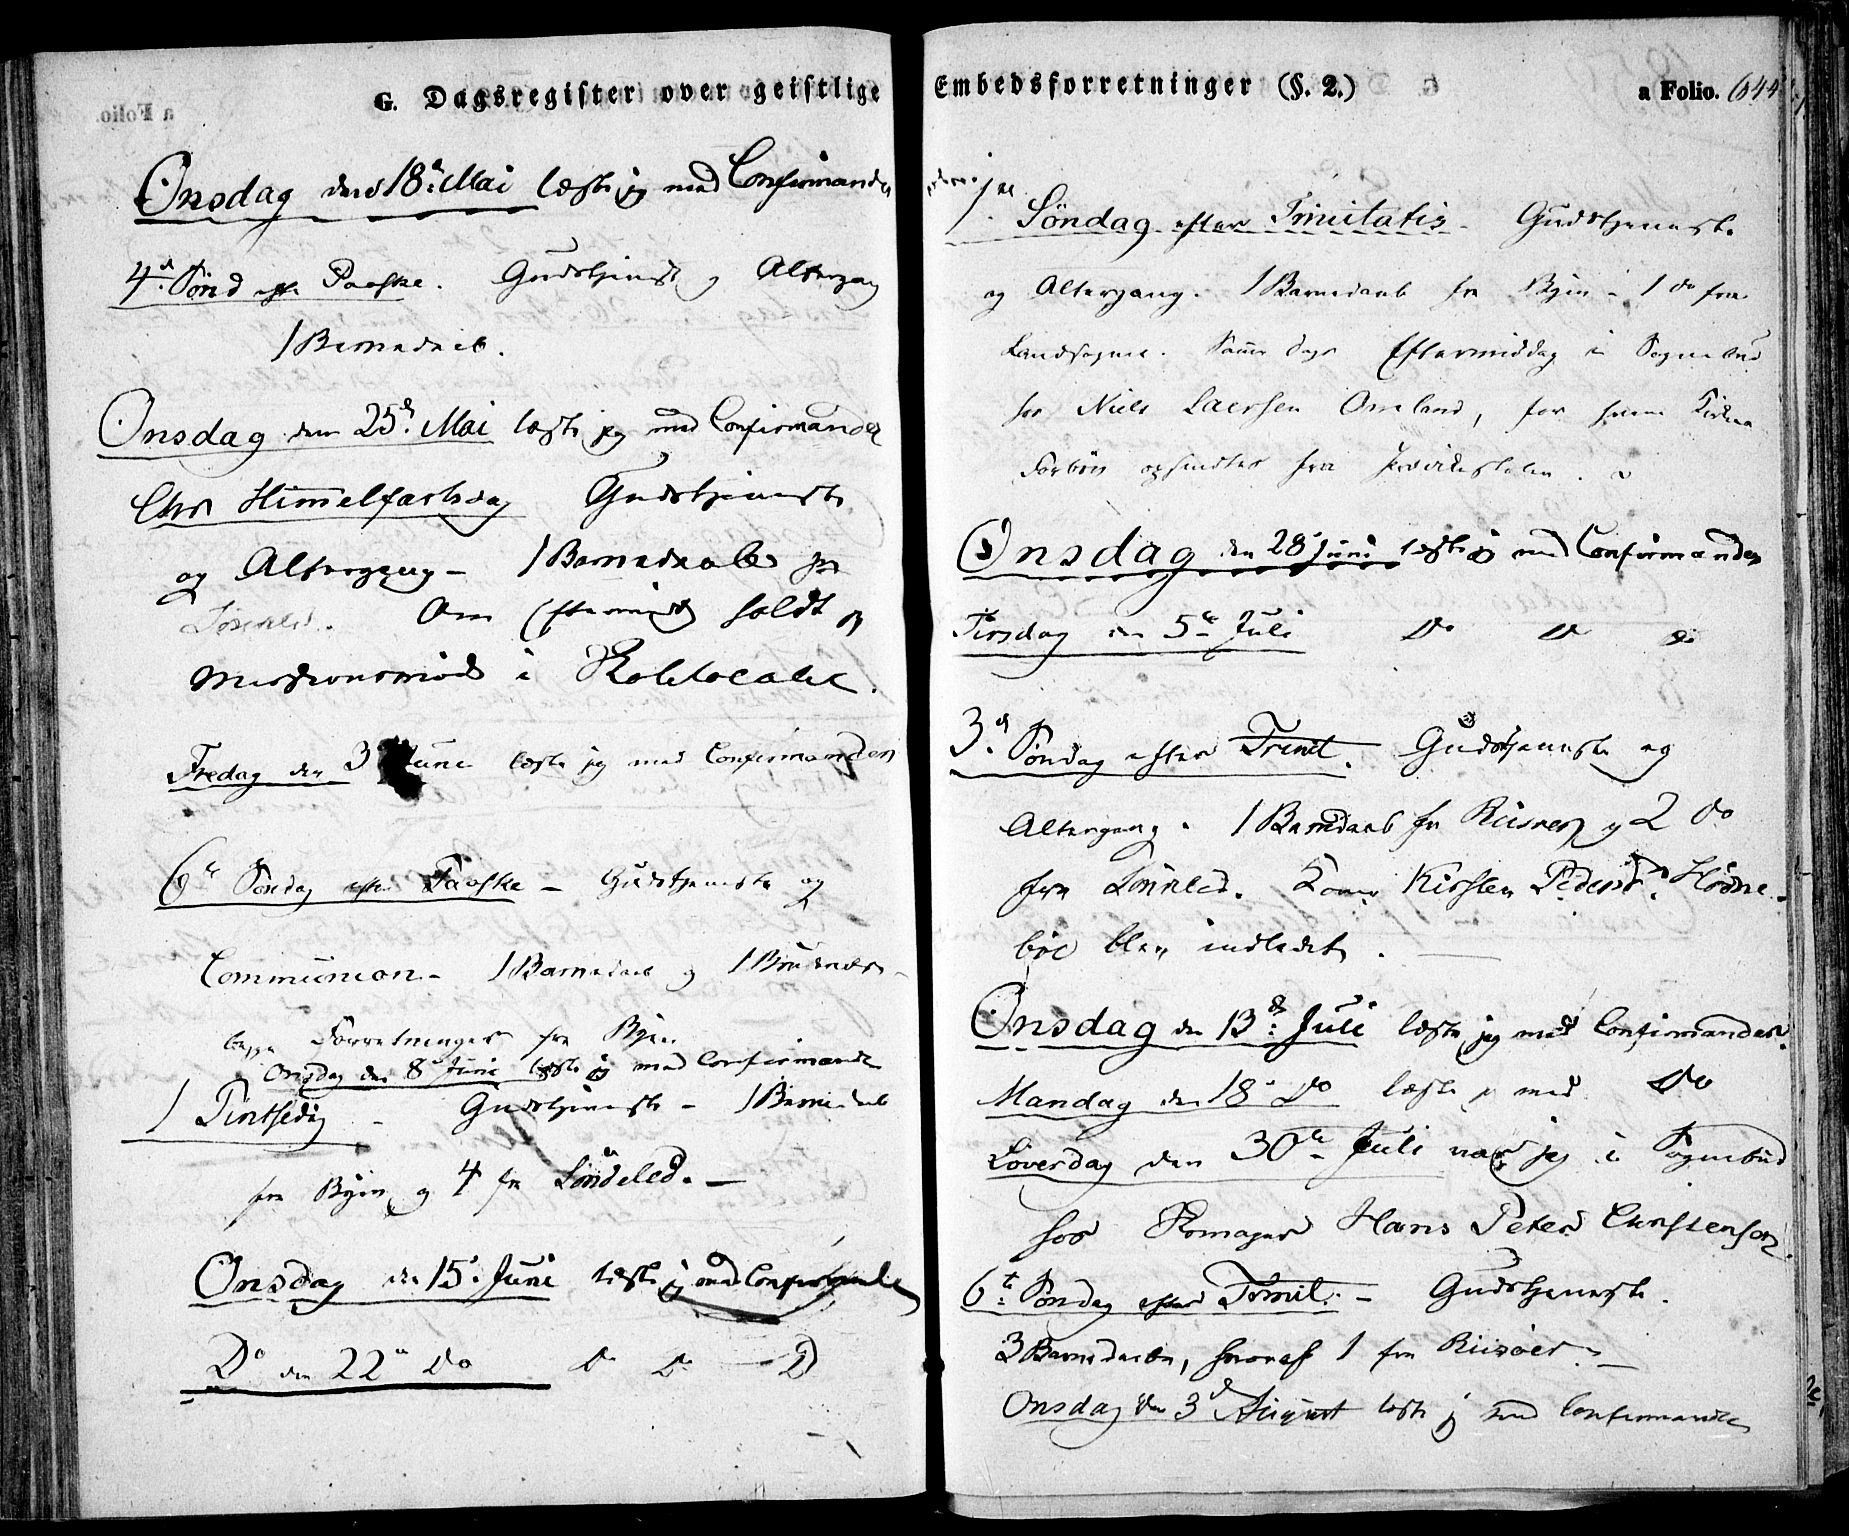 G. Dagsregister over geistlige
Onsdag den 18de Mai læste jeg med Confirmander
4de Sønd eft Paaske. Gudstjenest og Altergang
1 Barnedaab.
Onsdag den 25de Mai læste jeg med Confirmander
Chr Himmelfartsdag Gudstjeneste
og Altergang - 1 Barnedaab fra
Søndeled. Om Eftermidd holdt jeg
Missionsmøde i Skolelocalet.
Fredag den 3 Juni læste jeg med Confirmander
6te Søndag efter Paaske - Gudstjeneste og
Communion - 1 Barnedaab og 1 Brudevielse -
begge Forretninger fra Byen
Onsdag den 8de Juni læste jeg med Confirmande
1 Pintsedag - Gudstjeneste - 1 Barnedaab
fra Byen og 4 fra Søndeled. -
Onsdag den 15de Juni læste jeg med Confirmander
Do den 22de Do Do Do - D
Embedsforretninger (§. 2.) a Folio. 644
1ste Søndag efter Trinitatis - Gudstjeneste
og Altergang. 1 Barnedaab fra Byen - 1 do fra
Landsognet. Samme Dags Eftermiddag i Sognebud
hos Niels Laersen Omland, for hvem Kirkens
Forbøn opsendtes fra Prædikestolen.
Onsdag den 28 Juni læste jeg med Confirmander
Tirsdag den 5te Juli Do Do Do
3de Søndag efter Trinit. Gudstjeneste og
Altergang. 1 Barnedaab fra Riisøer og 2 Do
fra Søndeled. Kone Kirsten Pedersd. Hødne-
bøe blev indledet. -
Onsdag den 13de Juli læste jeg med Confirmander.
Mandag den 18 Do læste jeg med Do
Løverdag den 30te Juli var jeg i Sognebud
hos Skomager Hans Peter Christensen.
6te Søndag efter Trinit. - Gudstjeneste.
3 Barnedaabe, hvoraf 1 fra Riisøer -
Onsdag den 3de August læste jeg med Confirmander